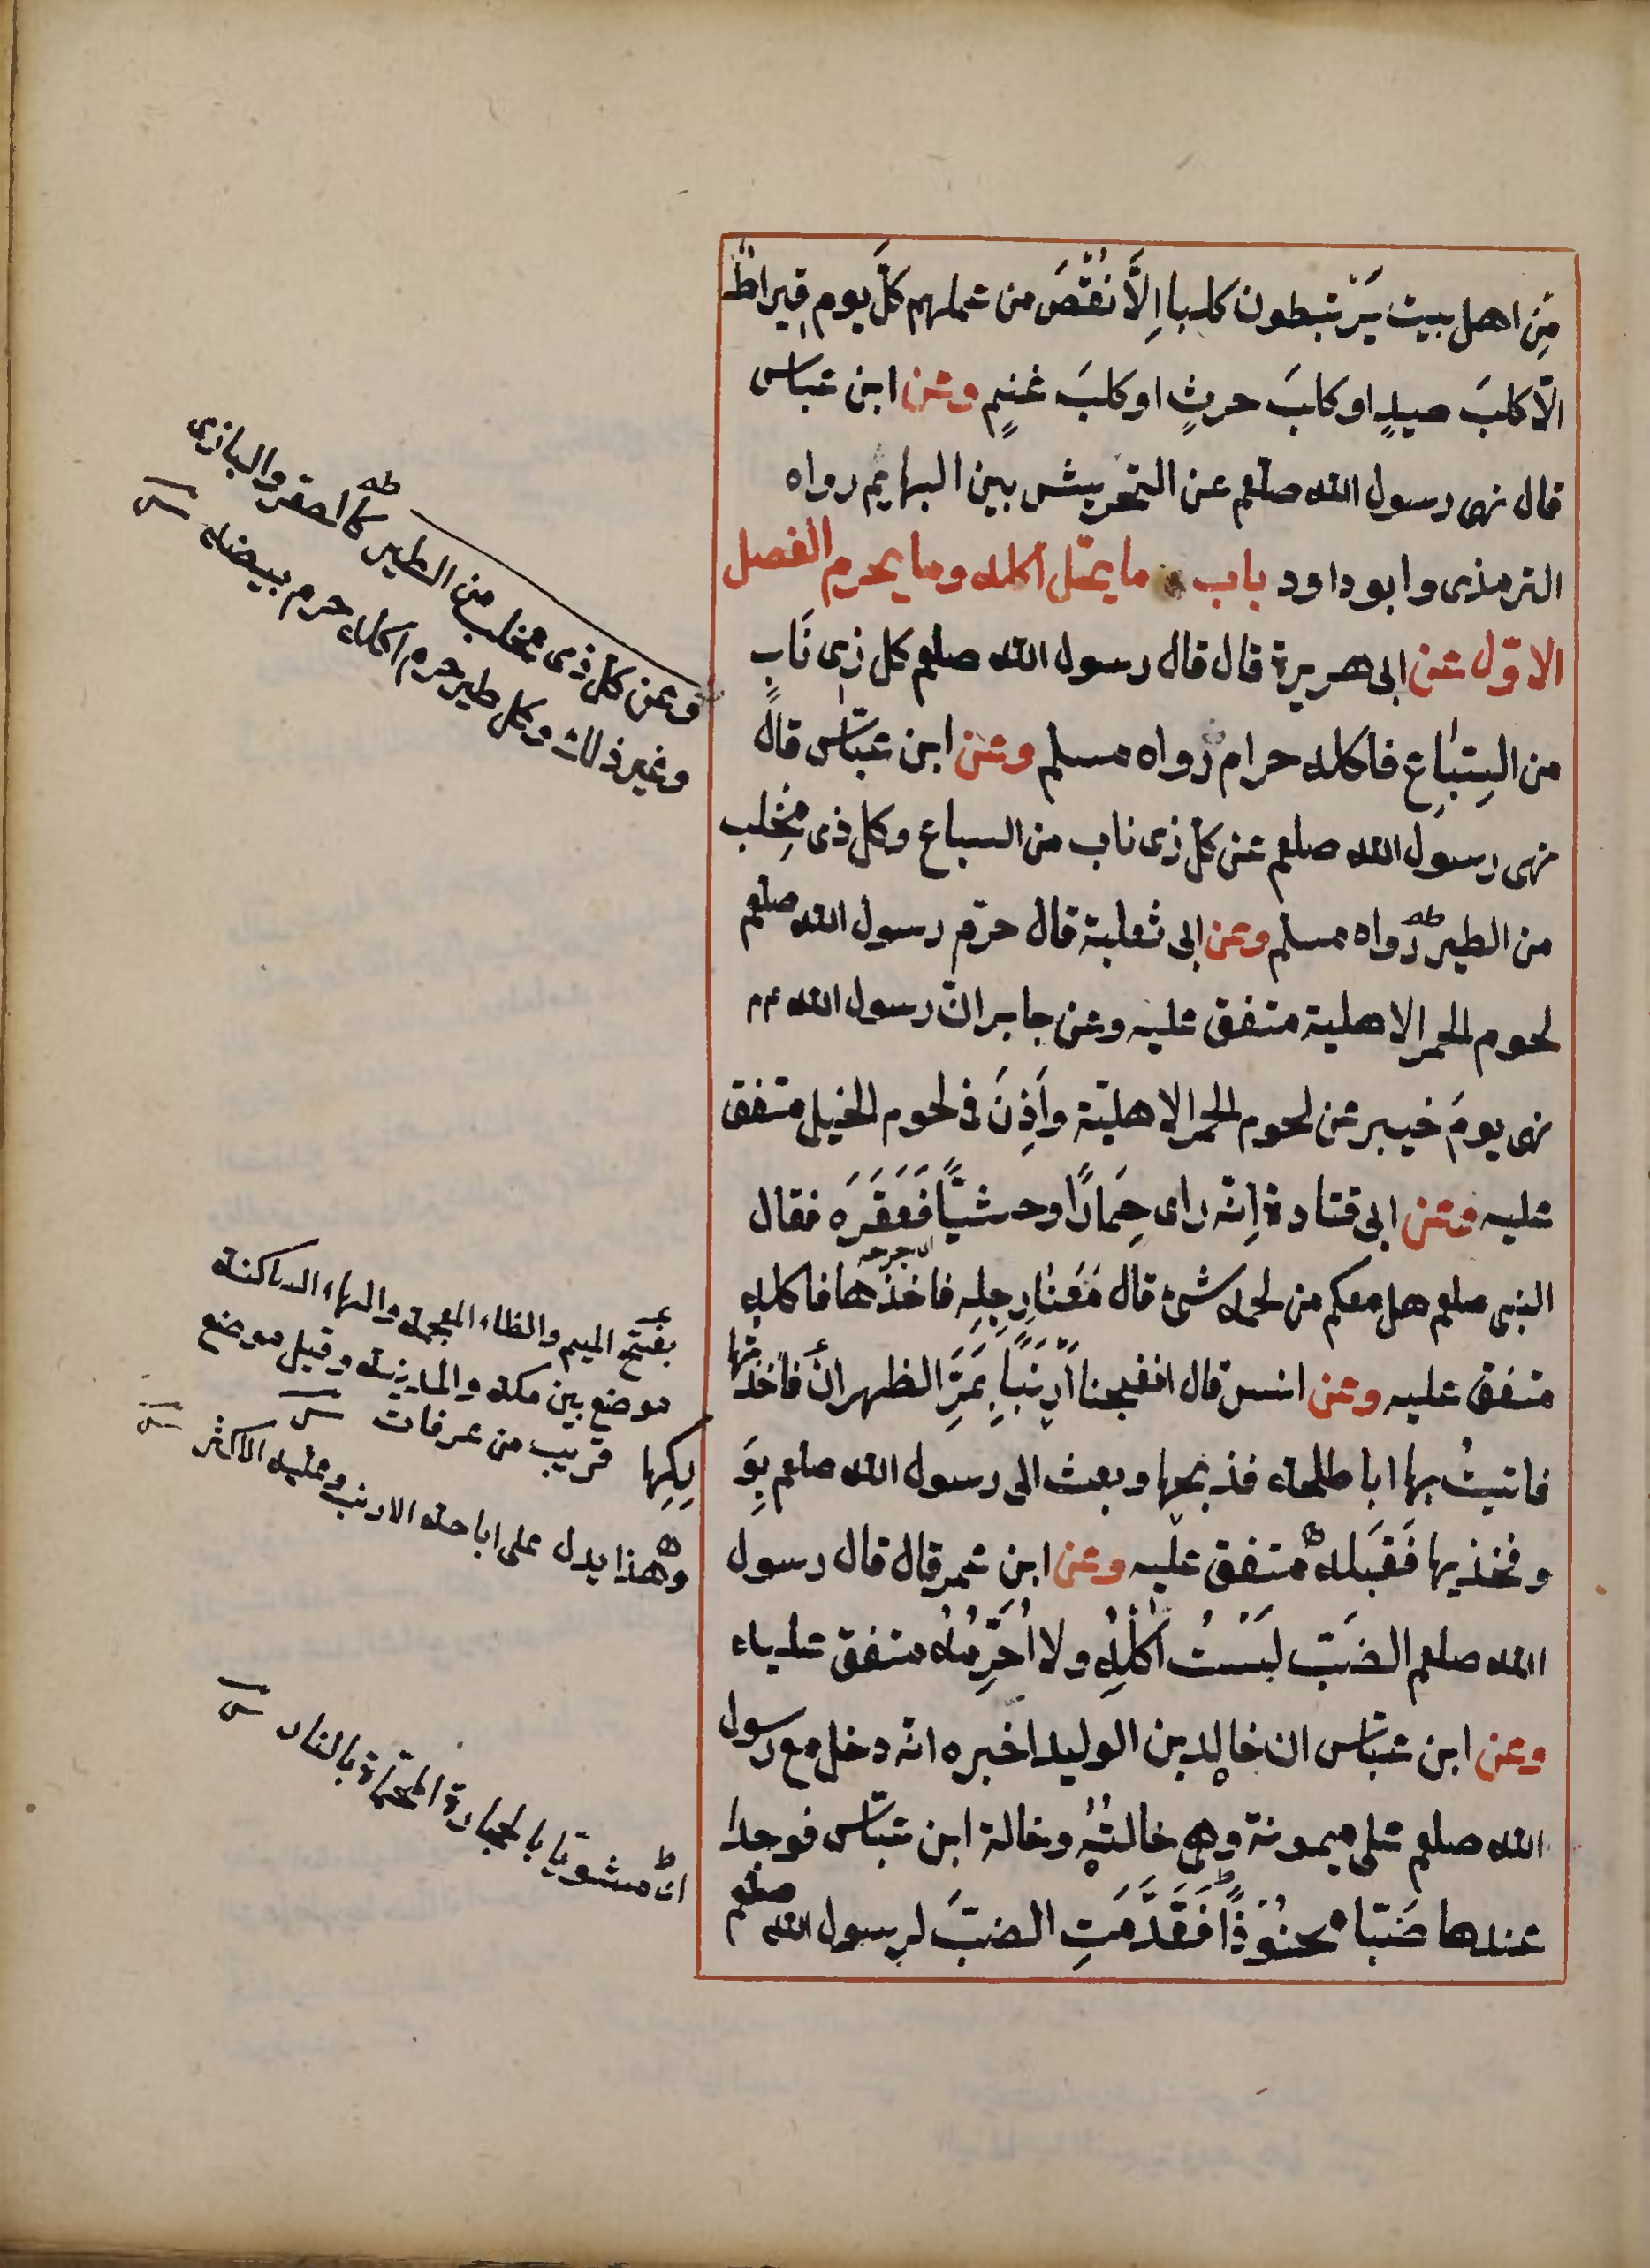 مِن اهل بيت يَرْتبطون كلبا اِلَّا نُقْصَ من عملهم كلَّ يوم قيراطٌ
الّا كلبَ صيدٍ او كلبَ حرثٍ او كلبَ غنمٍ وعن ابن عباس
قال نهى رسول الله صلعم عن التحريش بين البهايم رواه
الترمذى وابو داود باب ما يحّل اكله وما يحرم الفصل
الاوّل عن ابى هريرة قال قال رسول الله صلعم كل ذى نَابٍ
من السِّبَاعِ فاكله حرام رواه مسلم وعن ابن عبّاس قال
نهى رسول الله صلعم عن كل ذى ناب من السباع وكل ذى مِخلب
من الطير رواه مسلم وعن ابى ثعلبة قال حرّم رسول الله صلعم
لحوم الحمر الاهلية متفق عليه وعن جابر انّ رسول الله عم
نهى يومَ خيبر عن لحوم الحمر الاهليّة واَذِنَ فى لحوم الخيل متفق
عليه وعن ابى قتادة اِنّه راى حِمَارًا وحشيًّا فَعَقَرَه فقال
اى جرحه
النبى صلعم هل معكم من لحمه شىء قال مَعَنَا رِجلِه فاخذها فاكله
متفق عليه وعن انس قال انفجنا اَرْنَبًا بِمَرِّ الظهران فاخذتها
فاتيتُ بها ابا طلحة فذبحها وبعث الى رسول الله صلعم بِوَ
رِكِها
وفخذيها فَقَبَله متفق عليه وعن ابن عمر قال قال رسول
الله صلعم الضَبّ لَسْتُ آكُلُهِ ولا اُحَرِّمُهُ متفق عليه
وعن ابن عبّاس ان خالِد بن الوليد اخبره انّه دخل مع رسول
الله صلعم على ميمونة وهى خالتُهٗ وخالة ابن عبّاس فوجد
عندها ضَبّا محنُوْذًا فَقَدَّمَتِ الضبّ لرسول الله صلعم
وعن كل ذى مخلب من الطير كالصقر والبازى
وغير ذلك وكل طير حرم اكله حرم بيضه
بفتح الميم والظاء المعجمة والهاء الساكنة
موضع بين مكة والمدينة وقيل موضع
قريب من عرفات
وهذا يدل على اباحة الارنب وعليه الاكثر
اى مشويّا بالحجارة المحمّاة بالنار